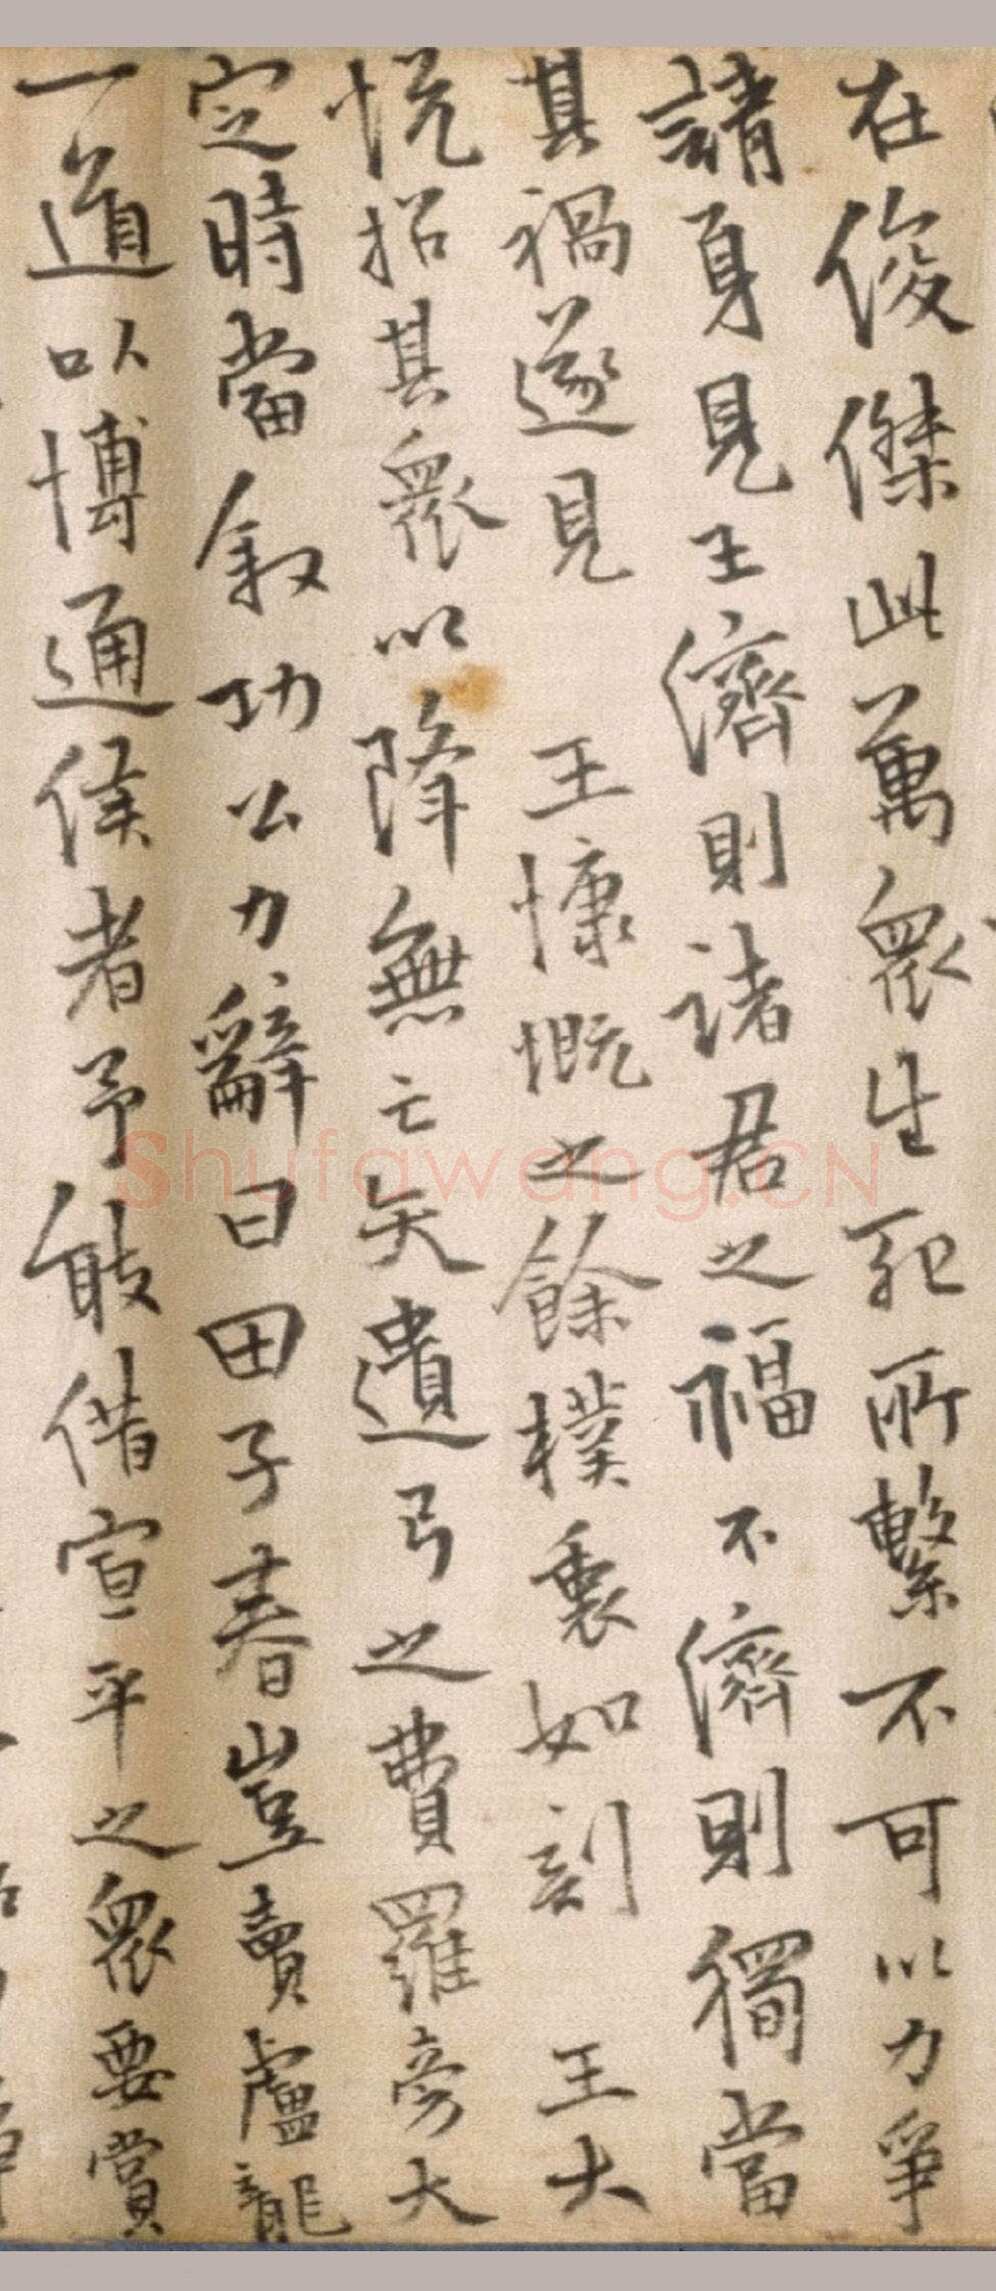 在俊傑此萬眾生死所繫不可以力爭
請身見王濟則諸君之福不濟則獨當
其禍遂見 王慷慨之餘樸裏如刻 王大
悅招其眾以降無亡矢遺弓之費羅旁大
定時當敘功公力辭曰田子春豈賣盧龍
一道以博通侯者予敢借宣平之眾要賞
Shufawang.CN